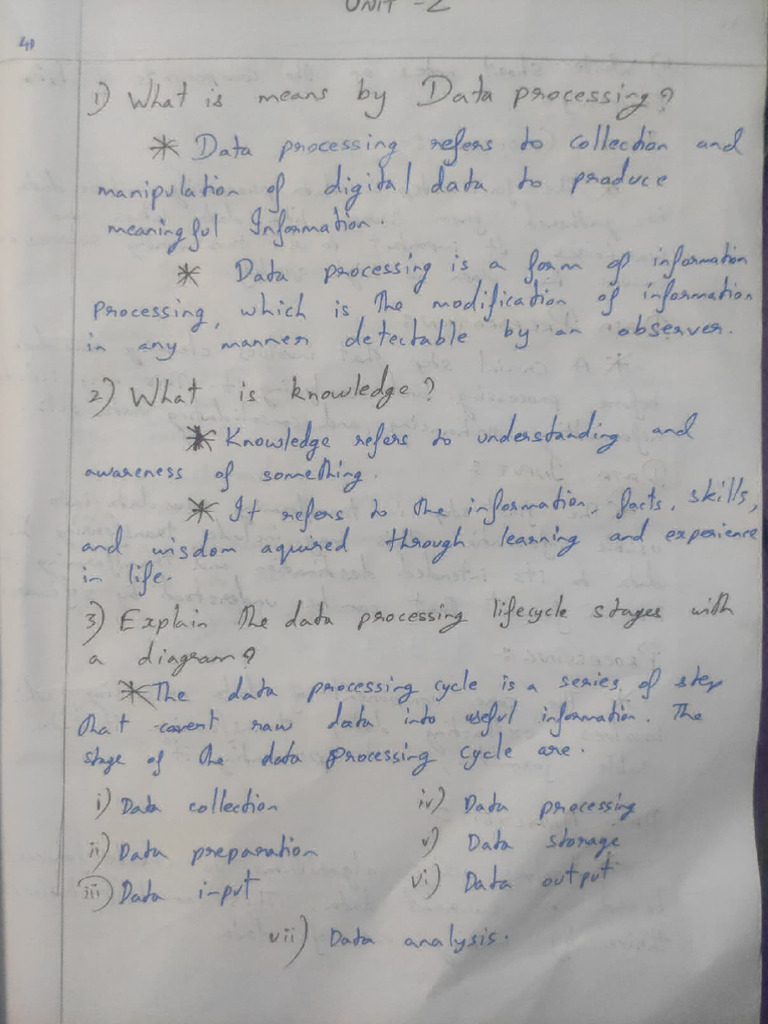 UNIT - 2
1) What is means by Data processing?
* Data processing refers to collection and
manipulation of digital data to produce
meaningful Information.
* Data processing is a form of information
Processing, which is the modification of information
in any manner detectable by an observer.
2) What is knowledge?
* Knowledge refers to understanding and
awareness of something.
* It refers to the information, facts, skills,
and wisdom aquired through learning and experience
in life.
3) Explain the data processing lifecycle stages with
a diagram?
* The data processing cycle is a series of step
that covent raw data into useful information. The
stage of the data processing cycle are.
i) Data collection
ii) Data preparation
iii) Data input
iv) Data processing
v) Data storage
vi) Data output
vii) Data analysis.